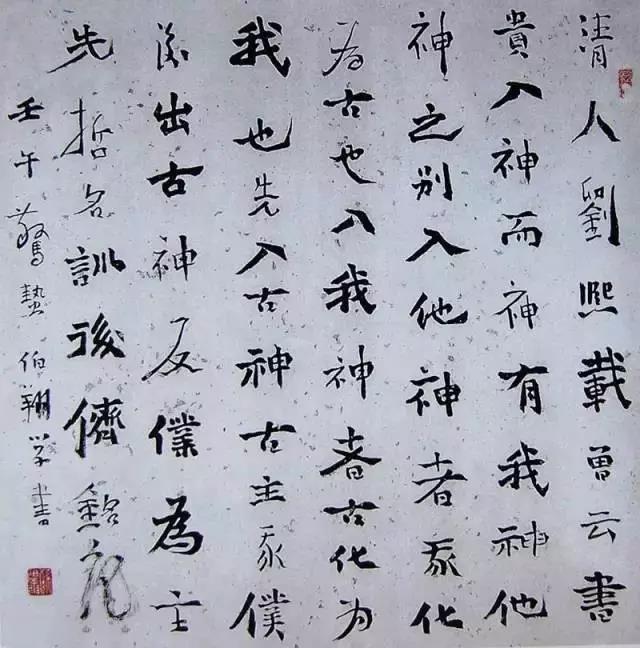 清人劉熙載曾云書
貴入神而神有我神他
神之别入他神者我化
為古也入我神者古化为
我也先入古神古主我僕
後出古神反僕為主
先哲名訓後儕
壬午驚蟄伯翔学書